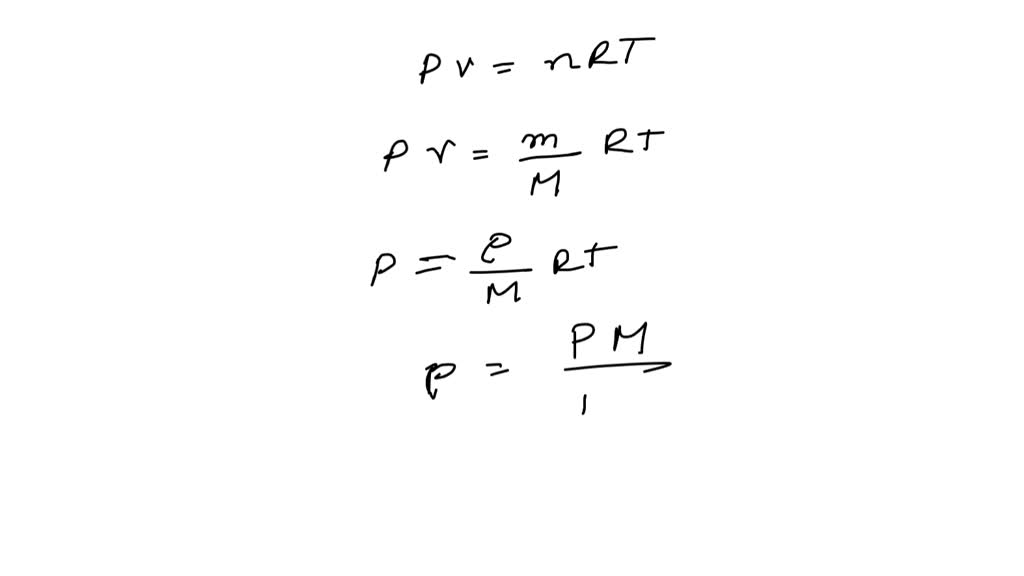 P v = nRT
P v = m/M RT
P = ρ/M RT
ρ = PM/